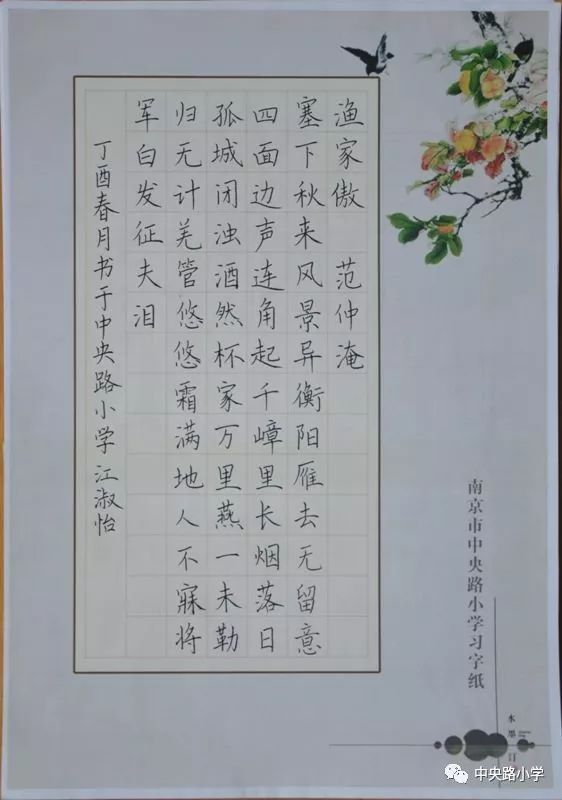 渔家傲 范仲淹
塞下秋来风景异衡阳雁去无留意
四面边声连角起千嶂里长烟落日
孤城闭浊酒然杯家万里燕一未勒
归无计羌管悠悠霜满地人不寐将
军白发征夫泪
丁酉春月书于中央路小学 江淑怡
南京市中央路小学习字纸
水墨
中央路小学